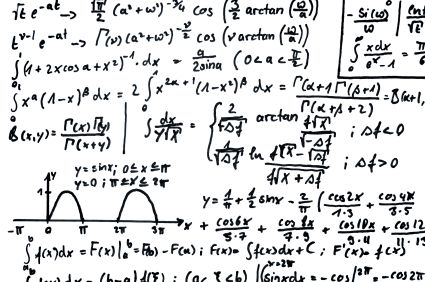 √t e^-at → √π/2 (a²+ω²)^-3/4 cos (3/2 arctan (ω/a))
t^ν-1 e^-at → Γ(ν) (a²+ω²)^-ν/2 cos (ν arctan(ω/a))
-Si(ω)
∫ xdx / e^x-1 =
∫(1+2xcosα+x²)^-1 · dx = α/2sinα (0<α<π/2)
∫x^α(1-x)^β dx = 2 ∫x^2α+1 (1-x²)^β dx = Γ(α+1)Γ(β+1)/Γ(α+β+2) = B(α+1,
B(x,y) = Γ(x)Γ(y)/Γ(x+y)
∫ dx/Y√X =
2/√Δf arctan f√X/√-Δf ; Δf<0
1/√Δf ln f√X-√Δf/f√X+Δf ; Δf>0
y=sinx; 0≤x≤π
y=0; π≤x≤2π
y
1
-π 0 π 2π 3π x
y = 1/π + 1/2 sinx - 2/π (cos2x/1·3 + cos4x/3·5
+ cos6x/5·7 + cos8x/7·9 + cos10x/9·11 + cos12x/11·13
∫f(x)dx = F(x)|_a^b = F(b) - F(a) ; F(x) = ∫f(x)dx + C ; F'(x) = f(x)
x=2π
∫sinxdx = -cos|^2π = -cos2π